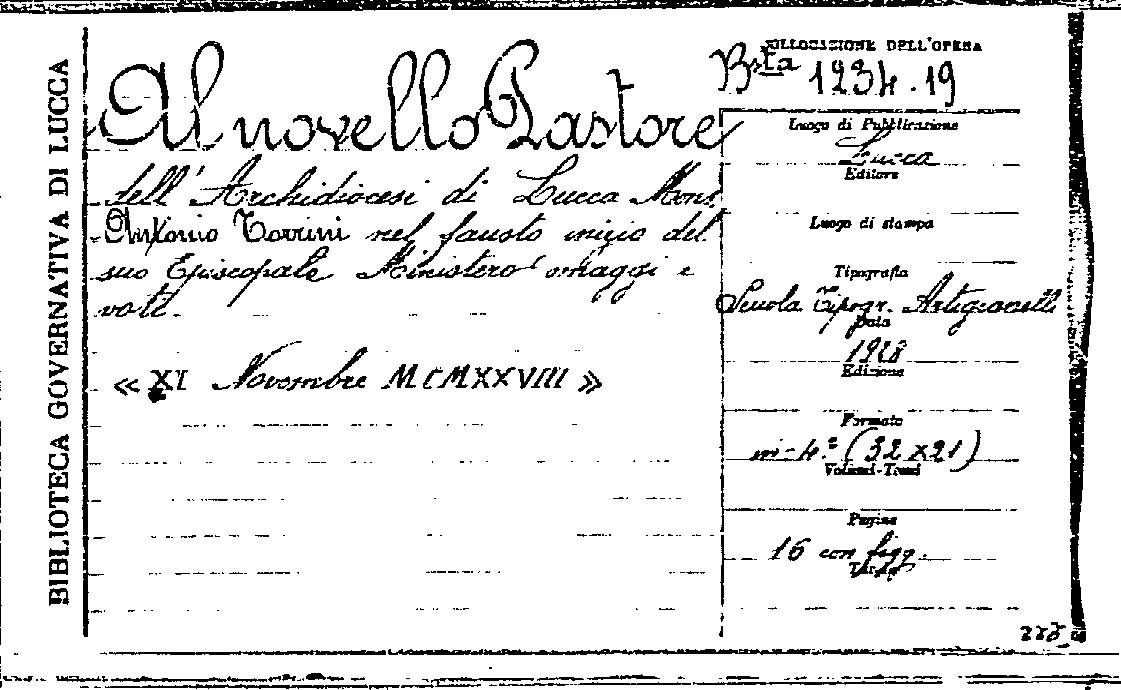 BIBLIOTECA GOVERNATIVA DI LUCCA
Al novello Pastore
dell'Archidiocesi di Lucca Mons.
Antonio Torrini nel fausto inizio del
suo Episcopale Ministero omaggi e
voti.
« XI Novembre MCMXXVIII »
COLLOCAZIONE DELL'OPERA
B.sta 1234.19
Luogo di Pubblicazione
Lucca
Editore
Luogo di stampa
Tipografia
Scuola Tipogr. Artigianelli
Data
1928
Edizione
Formato
in-4.º (32x21)
Volumi-Tomi
Pagine
16 con figg.
Tavole